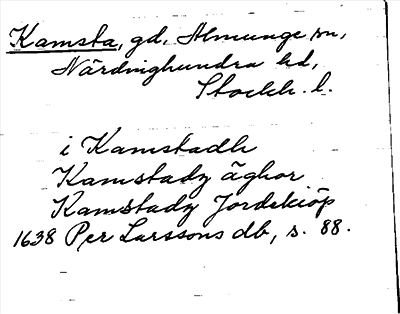 Kamsta, gd, Almunge sn,
Närdinghundra hd,
Stockh. l.
i Kamstadh
Kamstady äghor
Kamstady Jordekiöp
1638 Per Larssons db, s. 88.